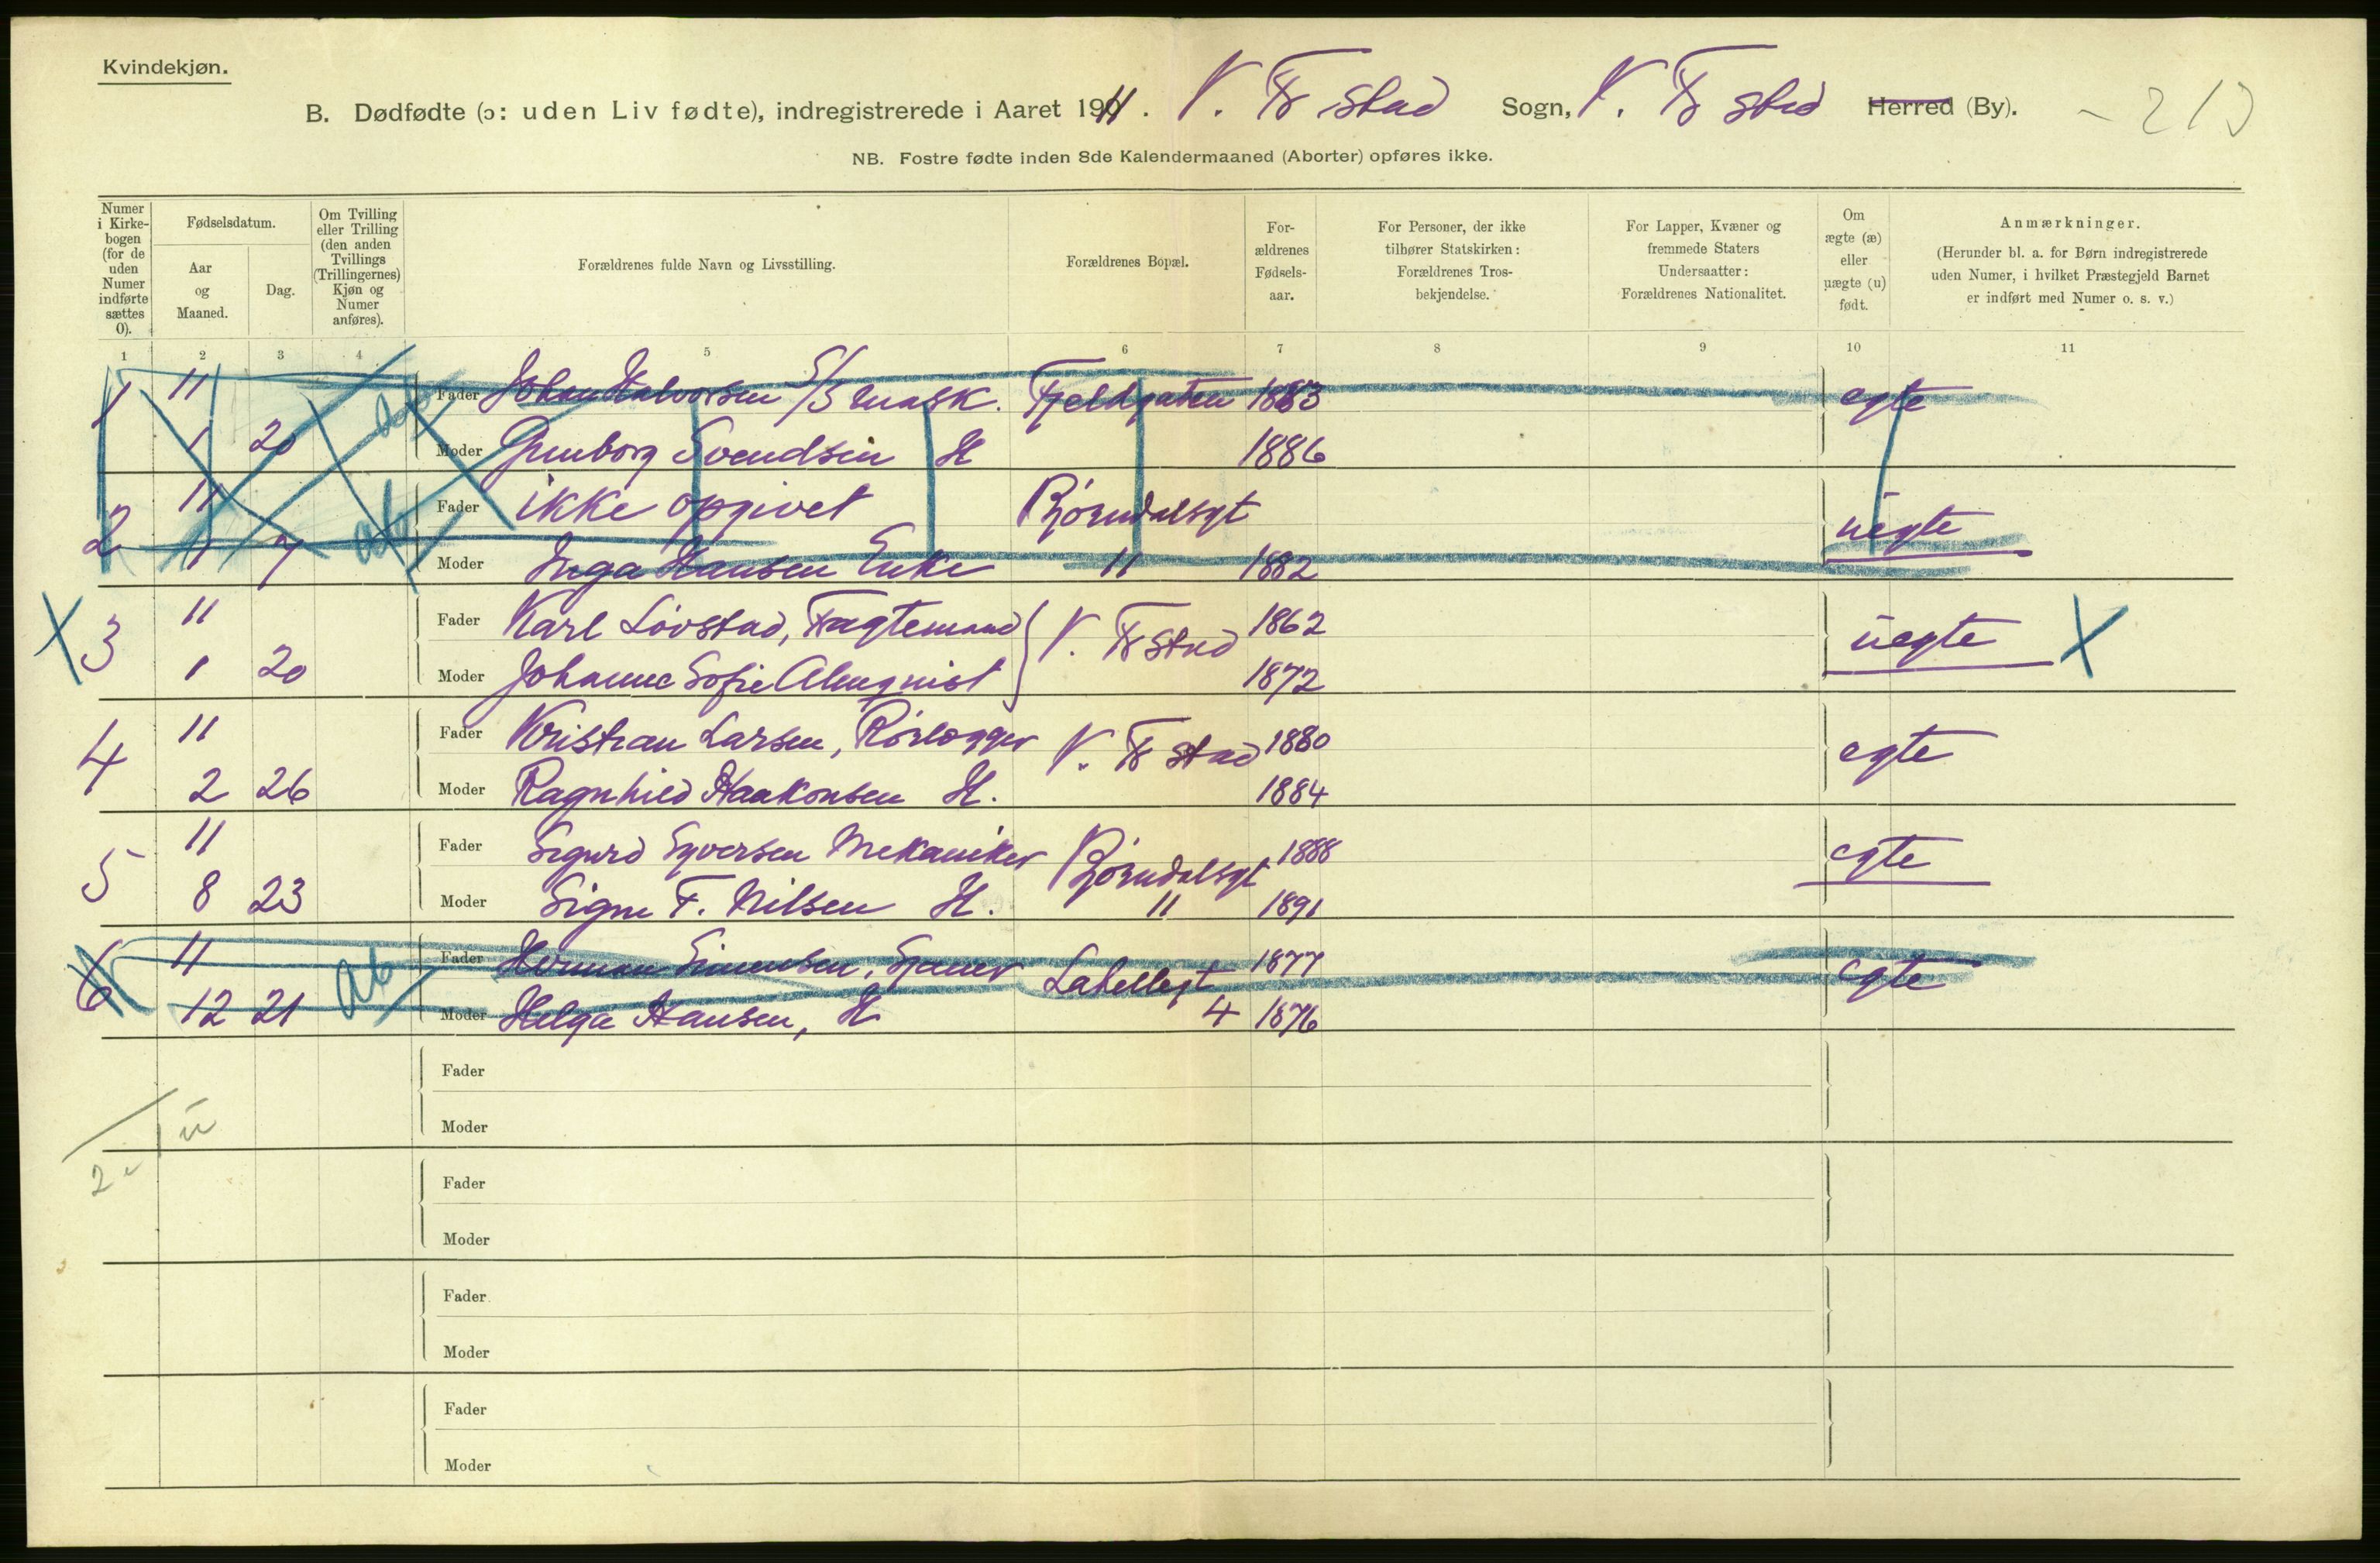 Kvindekjøn.
B. Dødfødte (ɔ: uden Liv fødte), indregistrerede i Aaret 1911. V. Fr stad Sogn, V. Fr stad Herred (By). - 213
NB. Fostre fødte inden 8de Kalendermaaned (Aborter) opføres ikke.
Numer i Kirkebogen (for de uden Numer indførte sættes 0).
Fødselsdatum.
Aar og Maaned.
Dag.
Om Tvilling eller Trilling (den anden Tvillings (Trillingernes) Kjøn og Numer anføres).
Forældrenes fulde Navn og Livsstilling.
Forældrenes Bopæl.
Forældrenes Fødselsaar.
For Personer, der ikke tilhører Statskirken: Forældrenes Trosbekjendelse.
For Lapper, Kvæner og fremmede Staters Undersaatter: Forældrenes Nationalitet.
Om ægte (æ) eller uægte (u) født.
Anmærkninger.
(Herunder bl. a. for Børn indregistrerede uden Numer, i hvilket Præstegjeld Barnet er indført med Numer o. s. v.)
1 2 3 4 5 6 7 8 9 10 11
1 11 Fader Johan Halvorsen S/S mask. Fjeldgaten 1883 egte
1 20 ab Moder Gunborg Svendsen H 1886
2 11 Fader ikke opgivet Bjørndalsgt uegte
1 7 ab Moder Inga Hansen Enke " 1882
X 3 11 Fader Karl Lövstad, Fragtemand V. Fr stad 1862 uegte X
1 20 Moder Johanne Sofie Almqvist 1872
4 11 Fader Kristian Larsen, Rörlægger V. Fr stad 1880 egte
2 26 Moder Ragnhild Haakonsen H. 1884
5 11 Fader Sigurd Syversen Mekaniker Bjørndalsgt 1888 egte
8 23 Moder Signe F. Nilsen H. " 1891
6 11 Fader Herman Simensen, Labellegt 1877 egte
12 21 ab Moder Helga Hansen, H 4 1876
Fader
Moder
ü
2
Fader
Moder
Fader
Moder
Fader
Moder